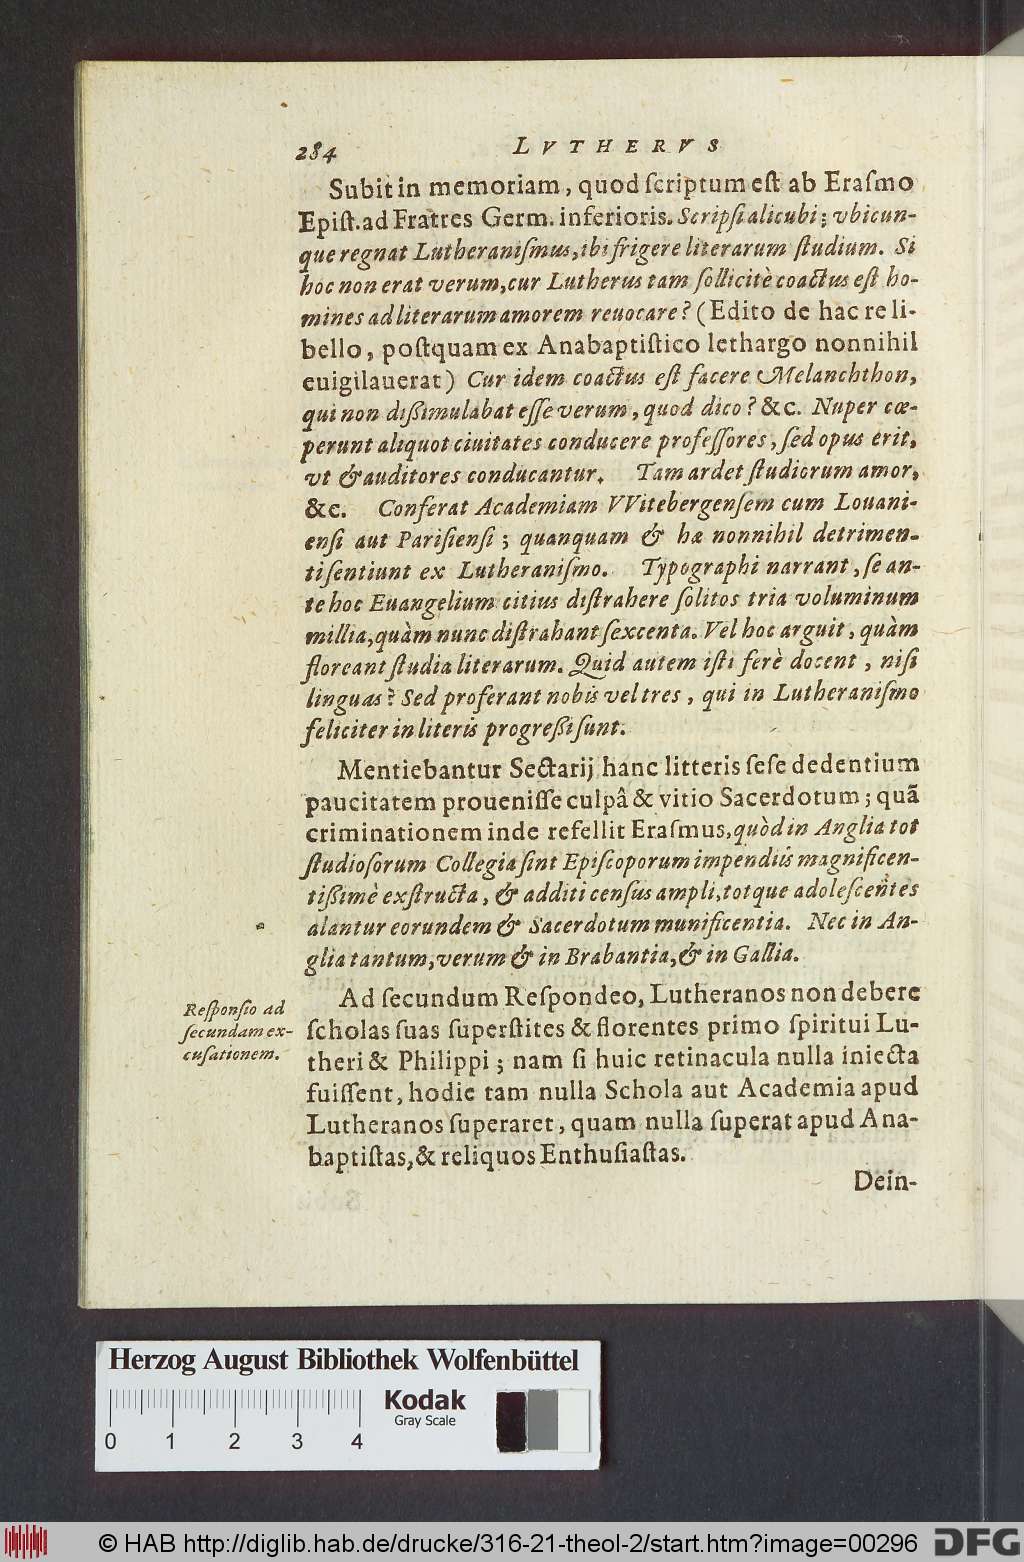 284 LVTHERVS
Subit in memoriam, quod ſcriptum eſt ab Eraſmo
Epiſt. ad Fratres Germ. inferioris. Scripſi alicubi; vbicun-
que regnat Lutheraniſmus, ibi frigere literarum ſtudium. Si
hoc non erat verum, cur Lutherus tam ſollicitè coactus eſt ho-
mines ad literarum amorem reuocare? (Edito de hac re li-
bello, poſtquam ex Anabaptiſtico lethargo nonnihil
euigilauerat) Cur idem coactus eſt facere Melanchthon,
qui non dißimulabat eſſe verum, quod dico? &c. Nuper cœ-
perunt aliquot ciuitates conducere profeſſores, ſed opus erit,
vt & auditores conducantur. Tam ardet ſtudiorum amor,
&c. Conferat Academiam VVitebergenſem cum Louani-
enſi aut Pariſienſi; quanquam & hæ nonnihil detrimen-
ti ſentiunt ex Lutheraniſmo. Typographi narrant, ſe an-
te hoc Euangelium citius diſtrahere ſolitos tria voluminum
millia, quàm nunc diſtrahant ſexcenta. Vel hoc arguit, quàm
floreant ſtudia literarum. Quid autem iſti ferè docent, niſi
linguas? Sed proferant nobis vel tres, qui in Lutheraniſmo
feliciter in literis progreßi ſunt.
Mentiebantur Sectarij hanc litteris ſeſe dedentium
paucitatem proueniſſe culpâ & vitio Sacerdotum; quã
criminationem inde refellit Eraſmus, quòd in Anglia tot
ſtudioſorum Collegia ſint Epiſcoporum impendiis magnificen-
tißimè exſtructa, & additi cenſus ampli, totque adoleſcẽtes
alantur eorundem & Sacerdotum munificentia. Nec in An-
glia tantum, verum & in Brabantia, & in Gallia.
Ad ſecundum Reſpondeo, Lutheranos non debere
ſcholas ſuas ſuperſtites & florentes primo ſpiritui Lu-
theri & Philippi; nam ſi huic retinacula nulla iniecta
fuiſſent, hodie tam nulla Schola aut Academia apud
Lutheranos ſuperaret, quam nulla ſuperat apud Ana-
baptiſtas, & reliquos Enthuſiaſtas.
Dein-
Reſponſio ad
ſecundam ex-
cuſationem.
Herzog August Bibliothek Wolfenbüttel
Kodak
Gray Scale
0 1 2 3 4
© HAB http://diglib.hab.de/drucke/316-21-theol-2/start.htm?image=00296
DFG